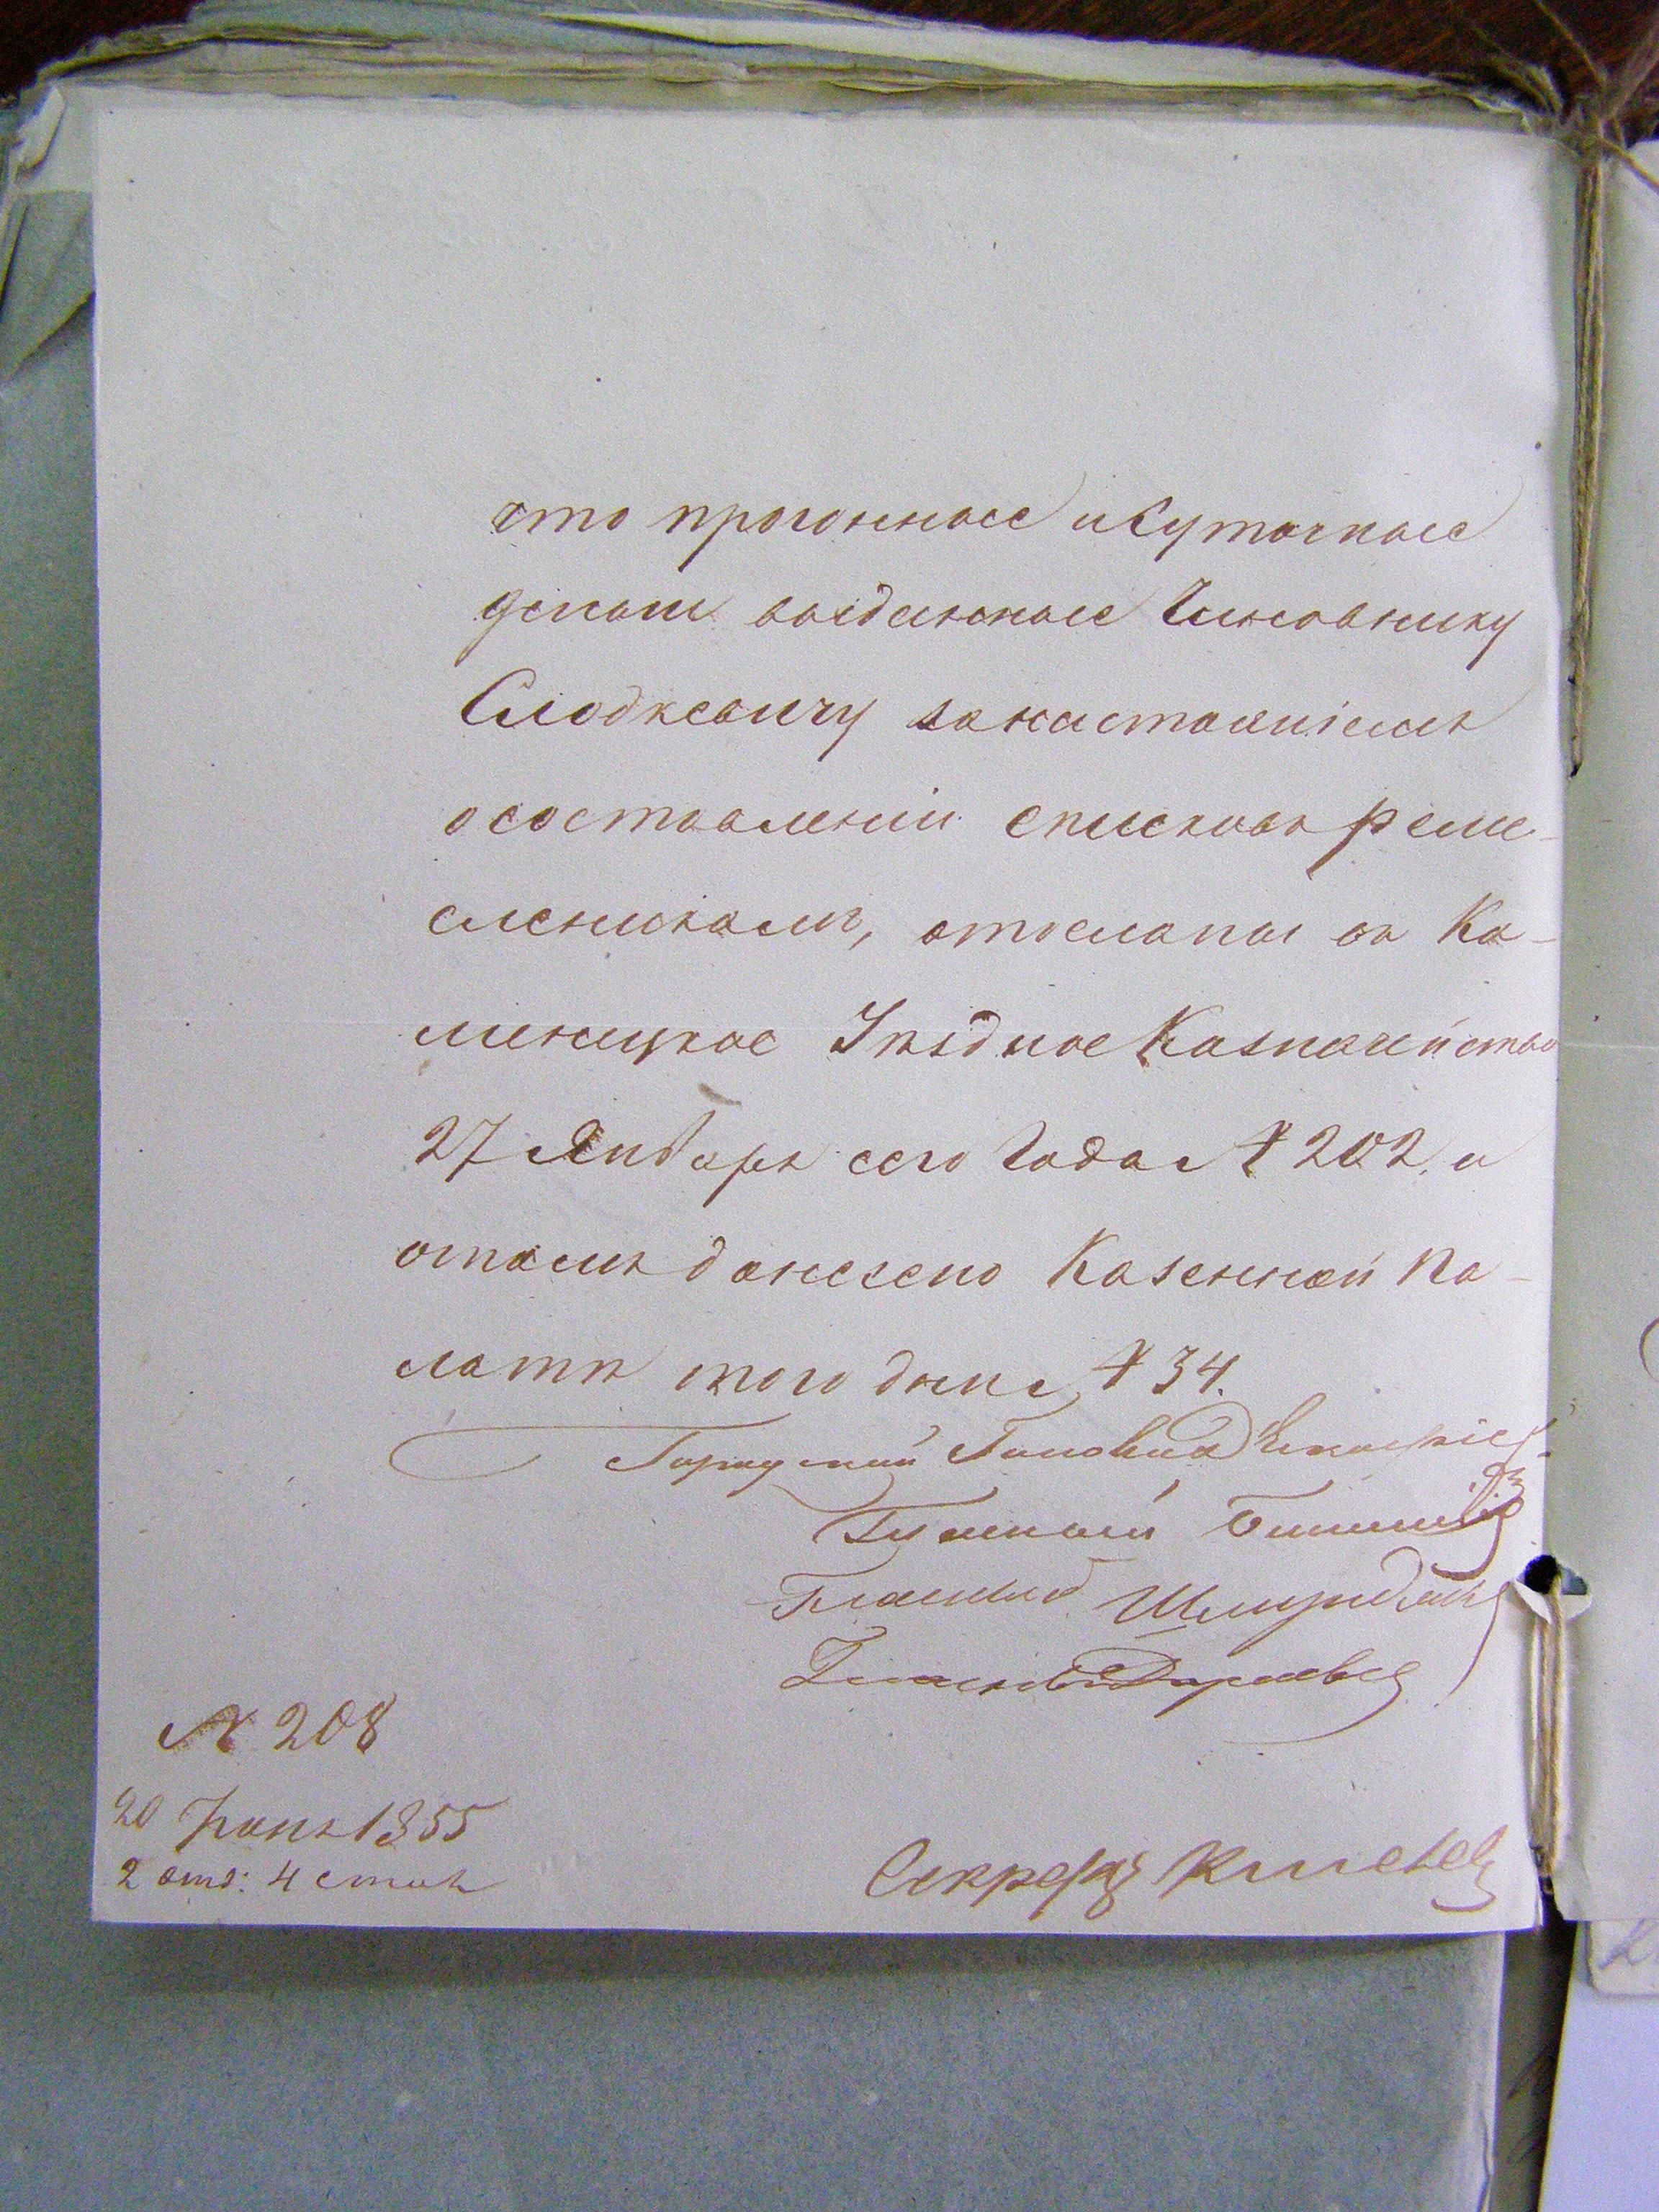 что прогонные и Суточные
деньги выданные Чиновнику
Слодкевичу за настояніемъ
о составленіи списковъ реме-
сленикамъ, отосланы въ Ка-
менецкое Уѣздное Казначейство
27 Январь сего Года № 202, и
о томъ донесено Казенной Па-
латѣ того дня № 34.
Городской Голова
Гласный
Гласный
Гласный
№ 208
20 Іюня 1855
2 отд: 4 стол
Секретарь